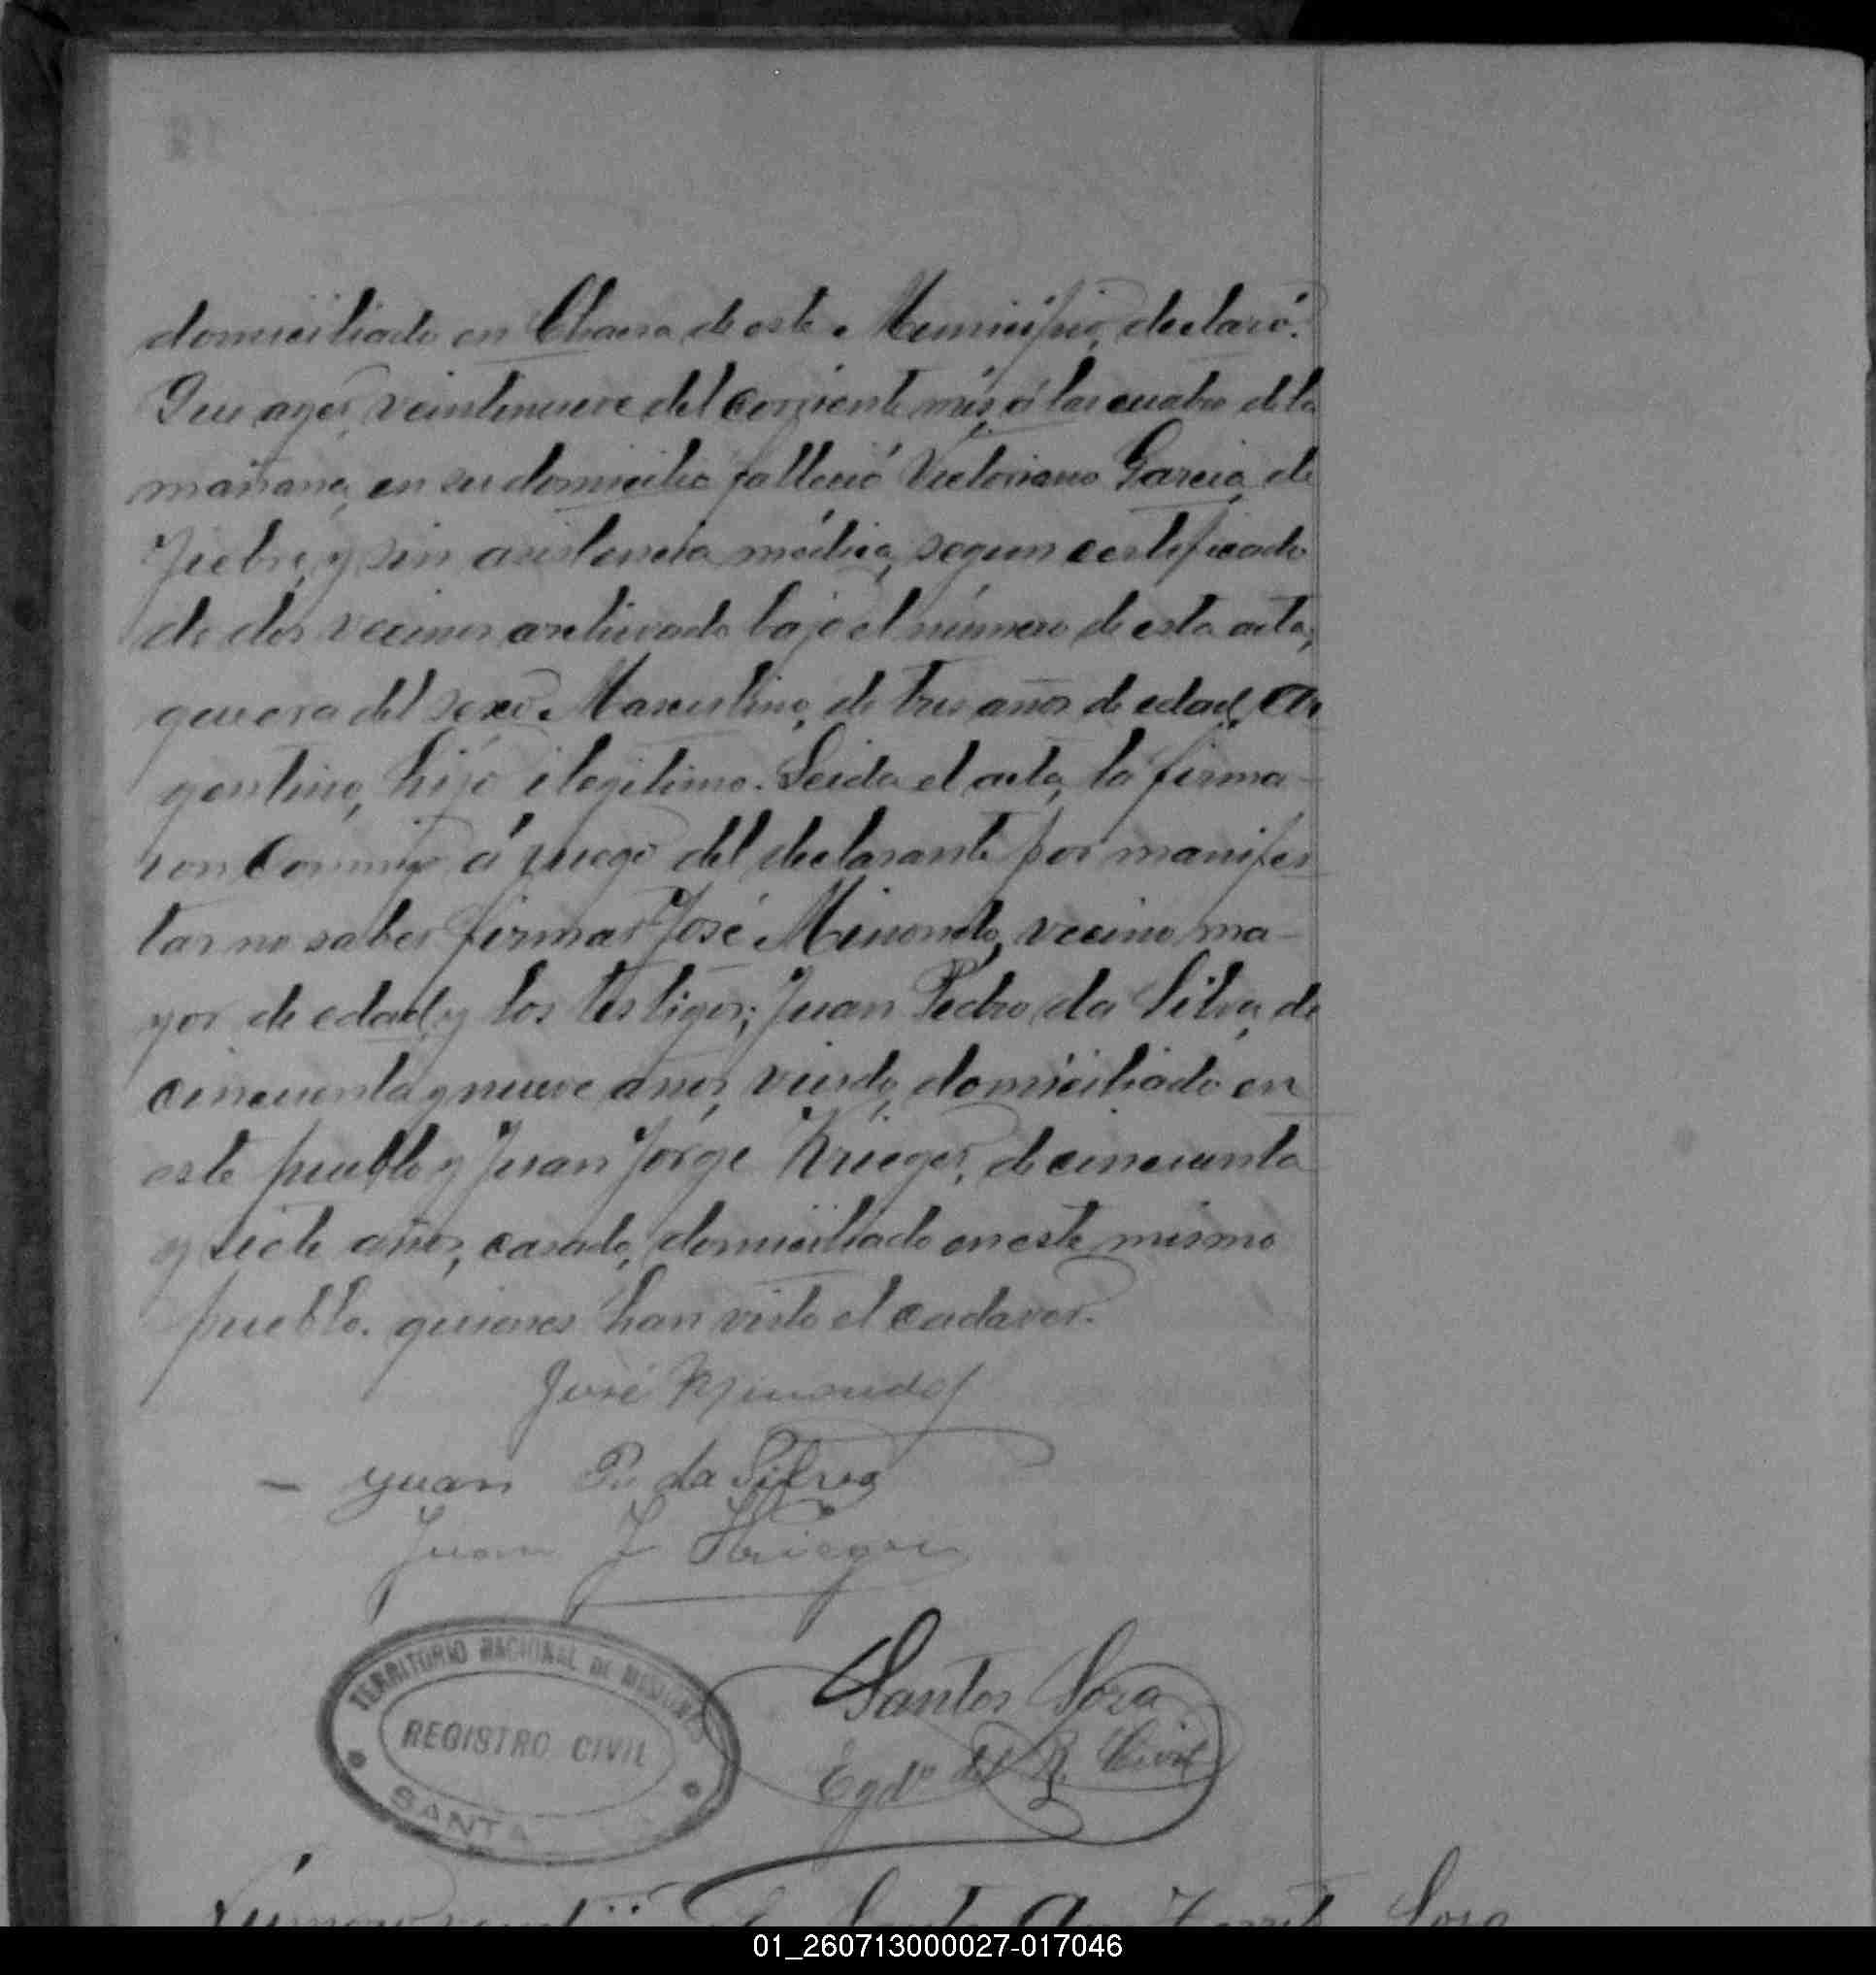 domiciliado en Chacra de este Municipio, declaró:
Que ayer, veintinueve del corriente mes, á las cuatro de la
mañana, en su domicilio falleció Victoriano Garcia, de
Fiebre, y sin asistencia médica, segun certificado
de dos vecinos archivado bajo el número de esta acta;
que era del sexo Masculino, de tres años de edad, Ar
gentino, hijo ilegitimo. Leida el acta, la firma-
ron conmigo á ruego del declarante por manifes
tar no saber firmar José Minondo, vecino ma-
yor de edad, y los testigos; Juan Pedro da Silva, de
cincuenta y nueve años, viudo, domiciliado en
este pueblo y Juan Jorge Krieger, de cincuenta
y siete años, casado, domiciliado en este mismo
pueblo. quienes han visto el cadaver.
José Minondo
Juan P. da Silva
Juan J Krieger
TERRITORIO NACIONAL DE MISIONES
REGISTRO CIVIL
SANTA
Santos Sosa
Egdo del R. Civil
01_260713000027-017046